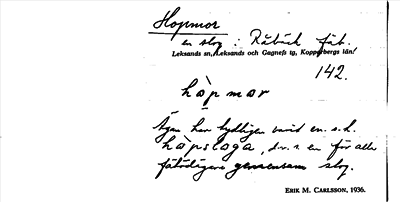 Hopmor
en slog i Råbäck fäb.
Leksands sn, Leksands och Gagnefs tg, Kopparbergs län!
142.
hȧpmar
Ägan har tydligen varit en s.k.
hȧpsloga, d.v.s. en för alla
fäbodägare gemensam slog.
ERIK M. CARLSSON, 1936.